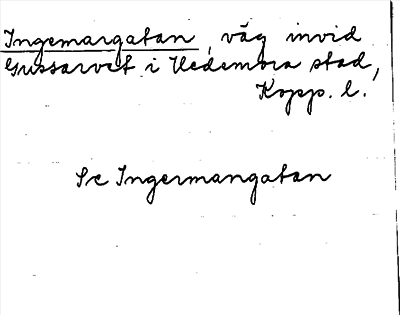 Ingemargatan, väg invid
Gussarvet i Hedemora stad,
Kopp. l.
Se Ingermangatan